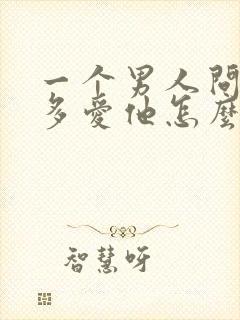 一个男人问
多爱他怎麼
智慧呀